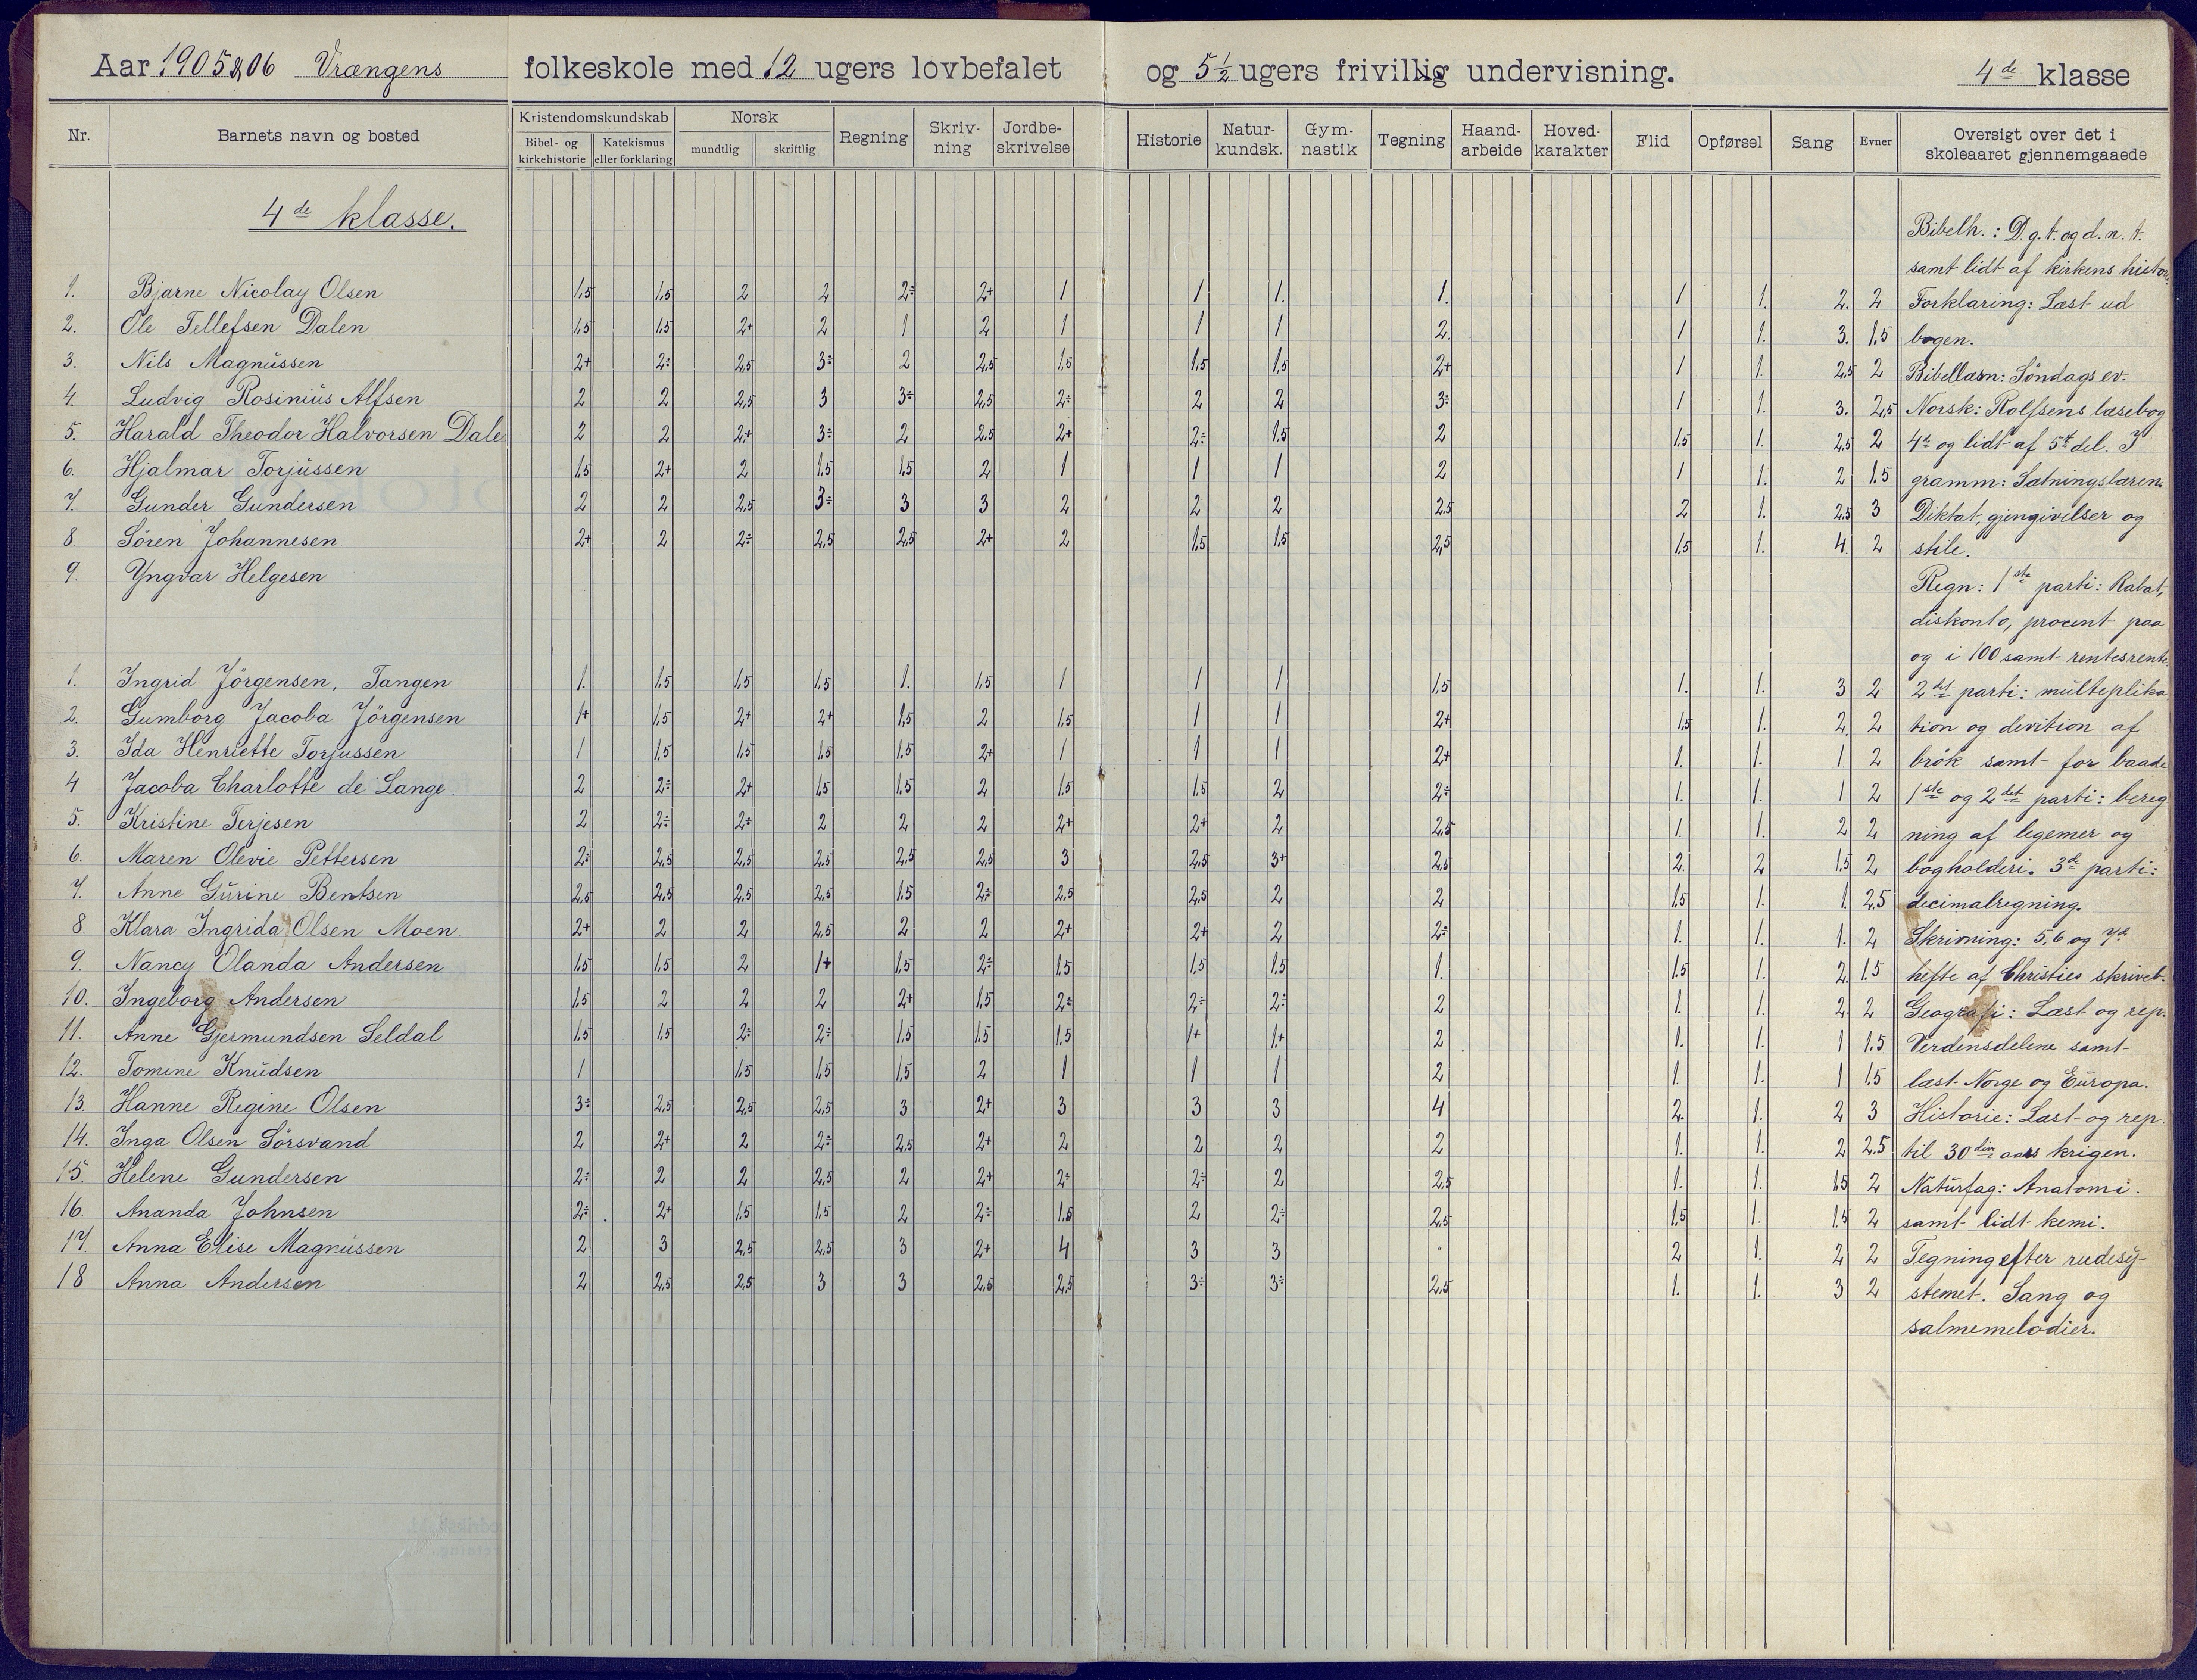 Aar 1905 & 06 Vrængens folkeskole med 12 ugers lovbefalet og 5 1/2 ugers frivillig undervisning. 4de klasse
Nr. Barnets navn og bosted Kristendomskundskab Bibel- og kirkehistorie Katekismus eller forklaring Norsk mundtlig skriftlig Regning Skriv-ning Jordbe-skrivelse Historie Natur-kundsk. Gym-nastik Tegning Haand-arbeide Hoved-karakter Flid Opførsel Sang Evner Oversigt over det i skoleaaret gjennemgaaede
4de klasse.
1. Bjarne Nicolay Olsen 1,5 1,5 2 2 2÷ 2+ 1 1 1. 1. 1 1. 2. 2
2. Ole Tellefsen Dalen 1,5 1,5 2+ 2 1 2 1 1 1 2. 1 1. 3. 1.5
3. Nils Magnussen 2+ 2÷ 2,5 3÷ 2 2,5 1,5 1,5 1,5 2+ 1 1. 2,5 2
4. Ludvig Rosinius Alfsen 2 2 2,5 3 3÷ 2,5 2÷ 2 2 3÷ 1 1. 3. 2,5
5. Harald Theodor Halvorsen Dale 2 2 2+ 3÷ 2 2,5 2+ 2÷ 1,5 2 1,5 1. 2,5 2
6. Hjalmar Torjussen 1,5 2+ 2 1,5 1,5 2 1 1 1 2 1 1. 2 1.5
7. Gunder Gundersen 2 2 2,5 3÷ 3 3 2 2 2 2,5 2 1. 2,5 3
8. Sören Johannesen 2+ 2 2÷ 2,5 2,5 2+ 2 1,5 1,5 2,5 1,5 1. 4. 2
9. Yngvar Helgesen
1. Ingrid Jörgensen, Tangen 1. 1,5 1,5 1,5 1. 1,5 1 1 1 1,5 1. 1. 3 2
2. Gumborg Jacoba Jörgensen 1+ 1,5 2+ 2+ 1,5 2 1,5 1 1 2+ 1,5 1. 2. 2
3. Ida Henriette Torjussen 1 1,5 1,5 1,5 1.5 2+ 1 1 1 2+ 1. 1. 1. 2
4 Jacoba Charlotte de Lange. 2 2÷ 2+ 1,5 1,5 2 1,5 1,5 2 2÷ 1. 1. 1 2
5. Kristine Terjesen 2 2÷ 2÷ 2 2 2 2+ 2+ 2 2,5 1. 1. 2 2
6. Maren Olevie Pettersen 2÷ 2,5 2,5 2,5 2,5 2,5 3 2,5 3+ 2,5 2. 2 1,5 2
7. Anne Gurine Bentsen 2,5 2,5 2,5 2,5 1.5 2÷ 2,5 2,5 2 2 1,5 1. 1. 2.5
8. Klara Ingrida Olsen Moen 2+ 2 2 2,5 2 2 2+ 2+ 2 2÷ 1. 1. 1. 2
9. Nancy Olanda Andersen 1,5 1,5 2 1+ 1,5 2÷ 1,5 1,5 1,5 1. 1,5 1. 2. 1.5
10. Ingeborg Andersen 1,5 2 2 2 2+ 1,5 2÷ 2÷ 2÷ 2 1. 1. 2. 2
11. Anne Gjermundsen Seldal 1,5 1,5 2÷ 2÷ 1,5 1,5 1,5 1+ 1+ 2 1. 1. 1 1.5
12. Tomine Knudsen 1 1,5 1,5 1,5 2 1 1 1 2 1. 1. 1 1.5
13. Hanne Regine Olsen 3÷ 2,5 2,5 2,5 3 2+ 3 3 3 4 2. 1. 2 3
14. Inga Olsen Sörsvand 2 2+ 2 2÷ 2,5 2+ 2 2 2 2 1. 1. 2 2.5
15. Helene Gundersen 2÷ 2 2 2,5 2 2+ 2÷ 2÷ 2 2,5 1. 1. 1,5 2
16. Ananda Johnsen 2÷ 2+ 1,5 1,5 2 2÷ 1,5 2 2÷ 2,5 1,5 1. 1,5 2
17. Anna Elise Magnussen 2 3 2,5 2,5 3 2+ 4 3 3 " 2 1. 2 2
18 Anna Andersen 2 2,5 2,5 3 3 2,5 2,5 3÷ 3÷ 2,5 1. 1. 3 2
Bibelh.: D. g. t. og d. n. t.
samt lidt af kirkens histor.
Forklaring: Læst ud
bogen.
Bibellæsn: Söndags ev.
Norsk: Rolfsens læsebog
4de og lidt af 5te del. I
gramm: Sætningslæren.
Diktat, gjengivelser og
stile.
Regn: 1ste parti: Rabat,
diskonto, procent paa
og i 100 samt rentesrente.
2det parti: multeplika
tion og devition af
brök samt for baade
1ste og 2det parti: bereg
ning af legemer og
bogholderi. 3de parti:
decimalregning.
Skrivning: 5, 6 og 7de
hefte af Christies skriveb.
Geografi: Læst og rep.
Verdensdelene samt
læst Norge og Europa.
Historie: Læst og rep.
til 30 aars krigen.
Naturfag: Anatomi.
samt lidt kemi.
Tegning efter rudesy-
stemet. Sang og
salmemelodier.